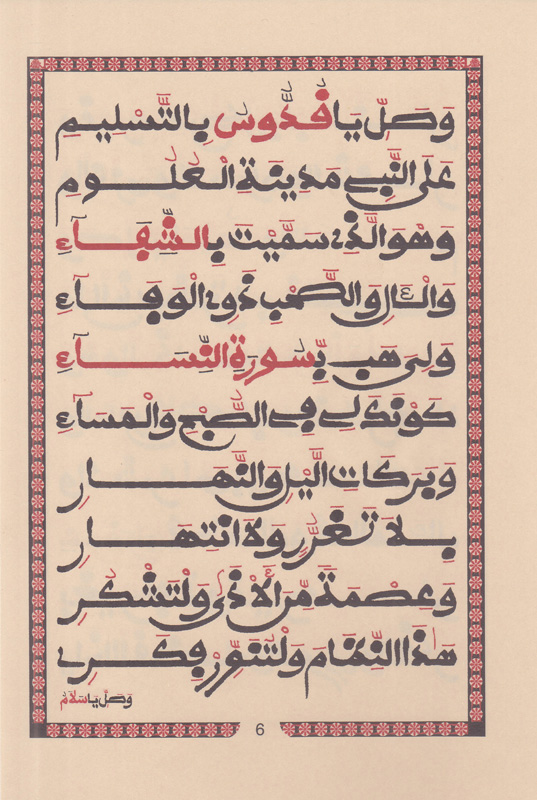 وَصَلِّ يَا قُدُّوسُ بِالتَّسْلِيمِ
عَلَى النَّبِي مَدِينَةِ الْعُلُومِ
وَهْوَ الَّذِي سَمَّيْتَ بِالشِّفَآءِ
وَالْـَالِ وَالصَّحْبِ ذَوِي الْوَفَآءِ
وَلِيَ هَبْ بِسُورَةِ النِّسَآءِ
كَوْنَكَ لِي فِي الصُّبْحِ وَالْمَسَآءِ
وَبَرَكَاتِ الَّيْلِ وَالنَّهَارِ
بِلَا تَغَرُّرٍ وَلَا انْتِهَارِ
وَعِصْمَةً مِّنَ الْأَذَى وَلْتَشْكُرِ
هَذَا النِّظَامَ وَلْتُنَوِّرْ فِكَرِي
وَصَلِّ يَا سَلَامُ
6